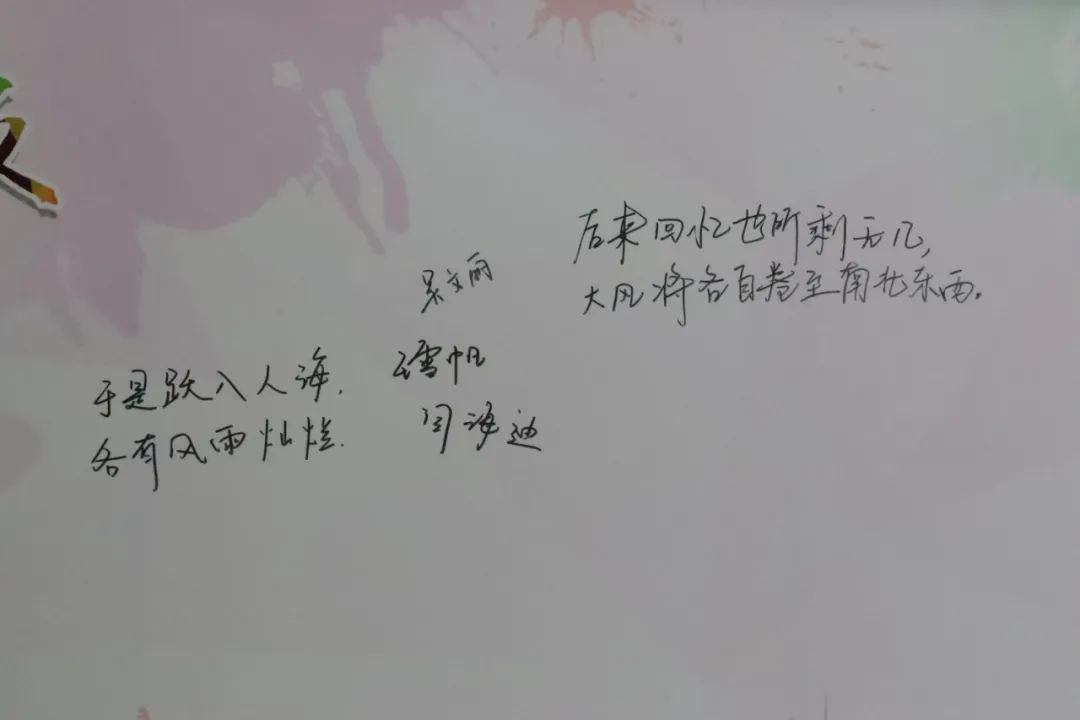 后来回忆也所剩无几，
大风将各自卷至南北东西.
吴文丽
雪帆
闫海迪
于是跃入人海.
各有风雨灿烂.